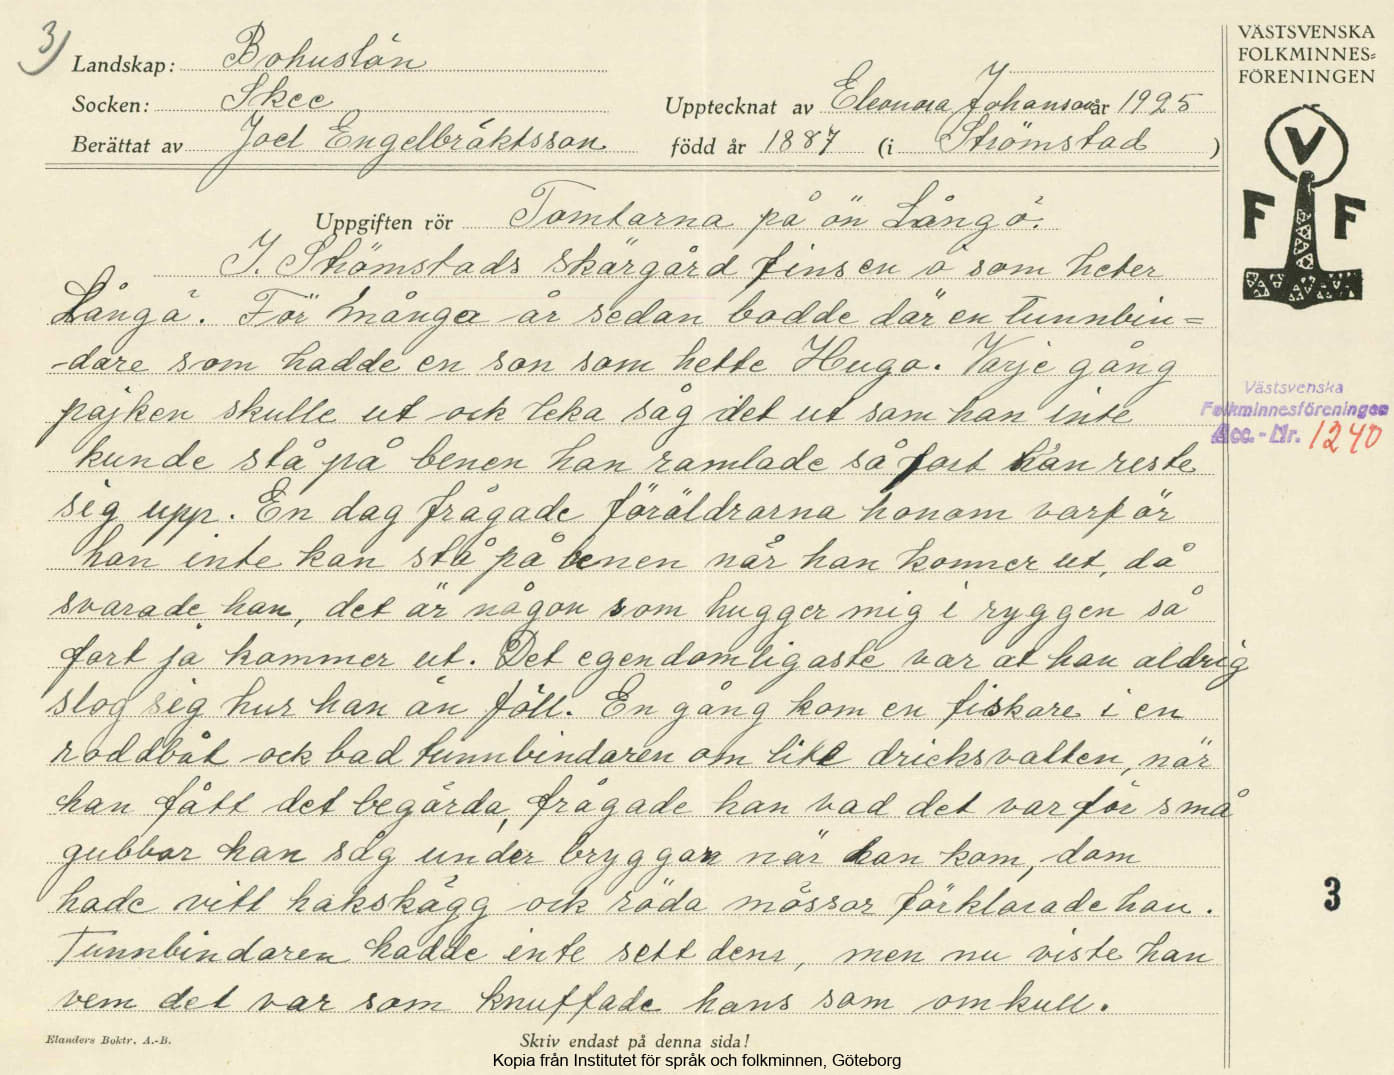 3)
Landskap: Bohuslän
Socken: Skee
Berättat av Joel Engelbräktsson
Upptecknat av Eleonora J. Johanson år 1925
född år 1887 (i Strömstad )
VÄSTSVENSKA
FOLKMINNES=
FÖRENINGEN
V
F F
Uppgiften rör Tomtarna på ön Långö.
I. Strömstads skärgård fins en ö som heter
Långö. För många år sedan bodde där en tunnbin=
-dare som hadde en son som hette Hugo. Varje gång
pojken skulle ut ock leka såg det ut som han inte
kunde stå på benen han ramlade så fort han reste
sig upp. En dag frågade föräldrarna honom varför
han inte kan stå på benen når han kommer ut, då
svarade han, det är någon som hugger mig i ryggen så
fort ja kommer ut. Det egendomligaste var at han aldrig
slog sig hur han än föll. En gång kom en fiskare i en
roddbåt ock bad tunnbindaren om lite dricksvatten, när
han fått det begärda, frågade han vad det var för små
gubbar han såg under bryggan när han kom, dom
hade vitt hakskägg ock röda mössor förklarade han.
Tunnbindaren hadde inte sett dem, men nu viste han
vem det var som knuffade hans son omkull.
Västsvenska
Folkminnesföreningen
Acc. - Nr. 1240
3
Elanders Boktr. A.-B.
Skriv endast på denna sida!
Kopia från Institutet för språk och folkminnen, Göteborg